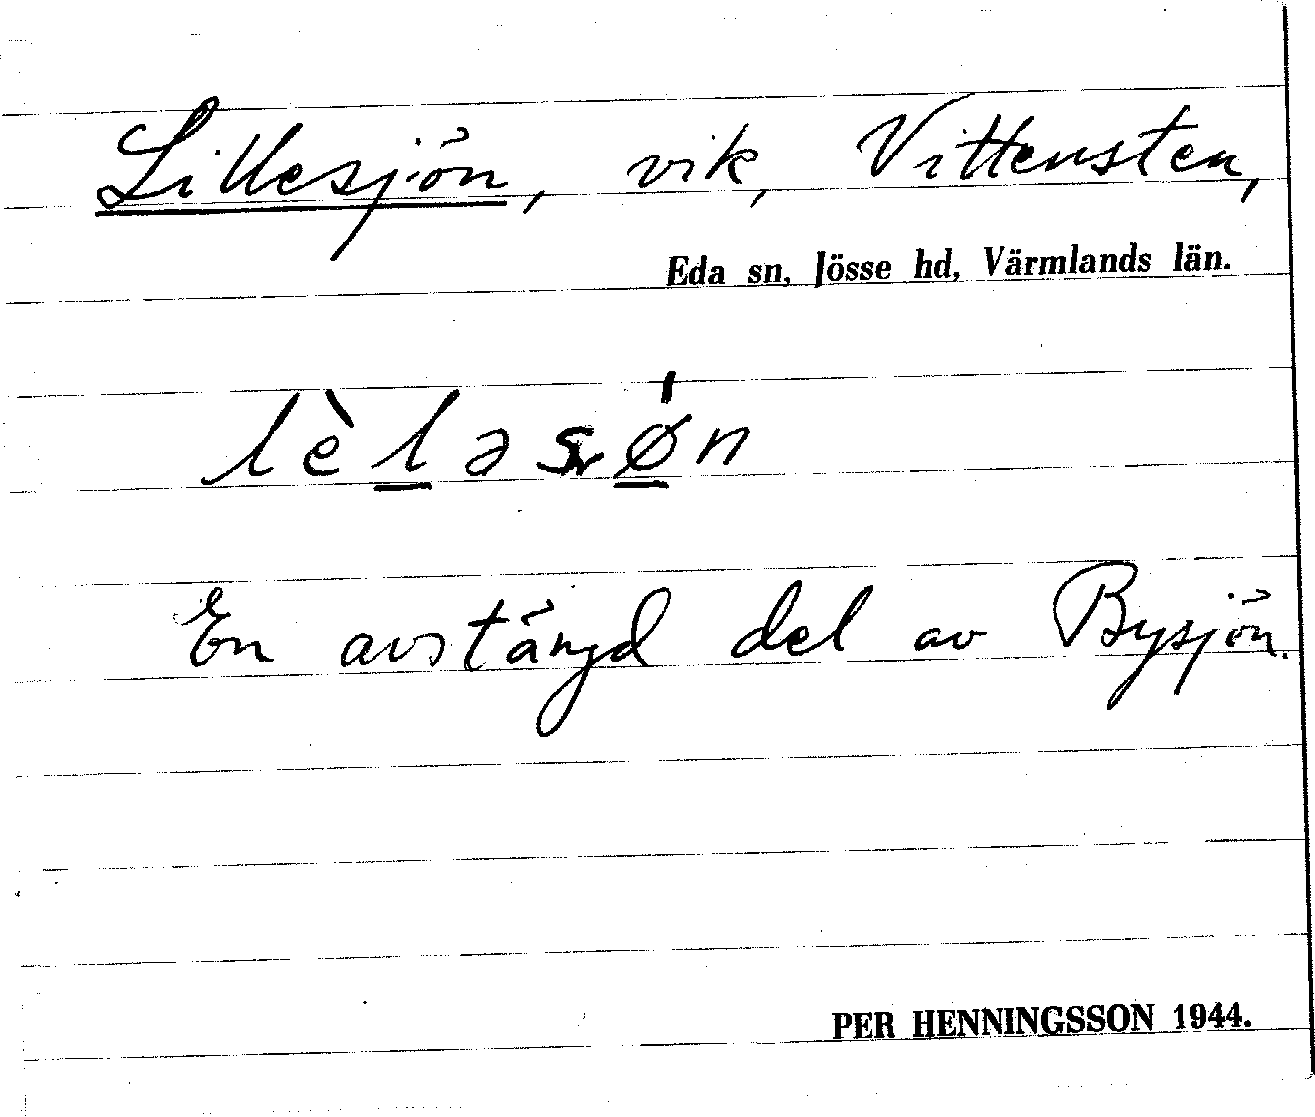 Lillesjön, vik, Vittensten,
Eda sn, Jösse hd, Värmlands län.
lèləsǿn
En avstängd del av Bysjön.
PER HENNINGSSON 1944.